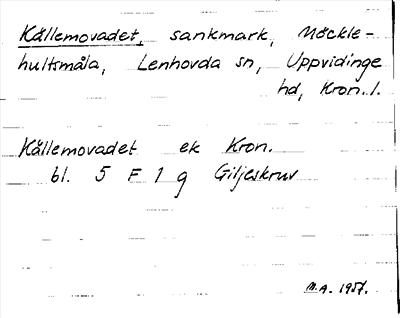 Källemovadet, sankmark, Möckle-
hultsmåla, Lenhovda sn, Uppvidinge
hd, Kron. l.
Källemovadet ek Kron.
bl. 5 F 1 g Giljeskruv
M.A. 1957.